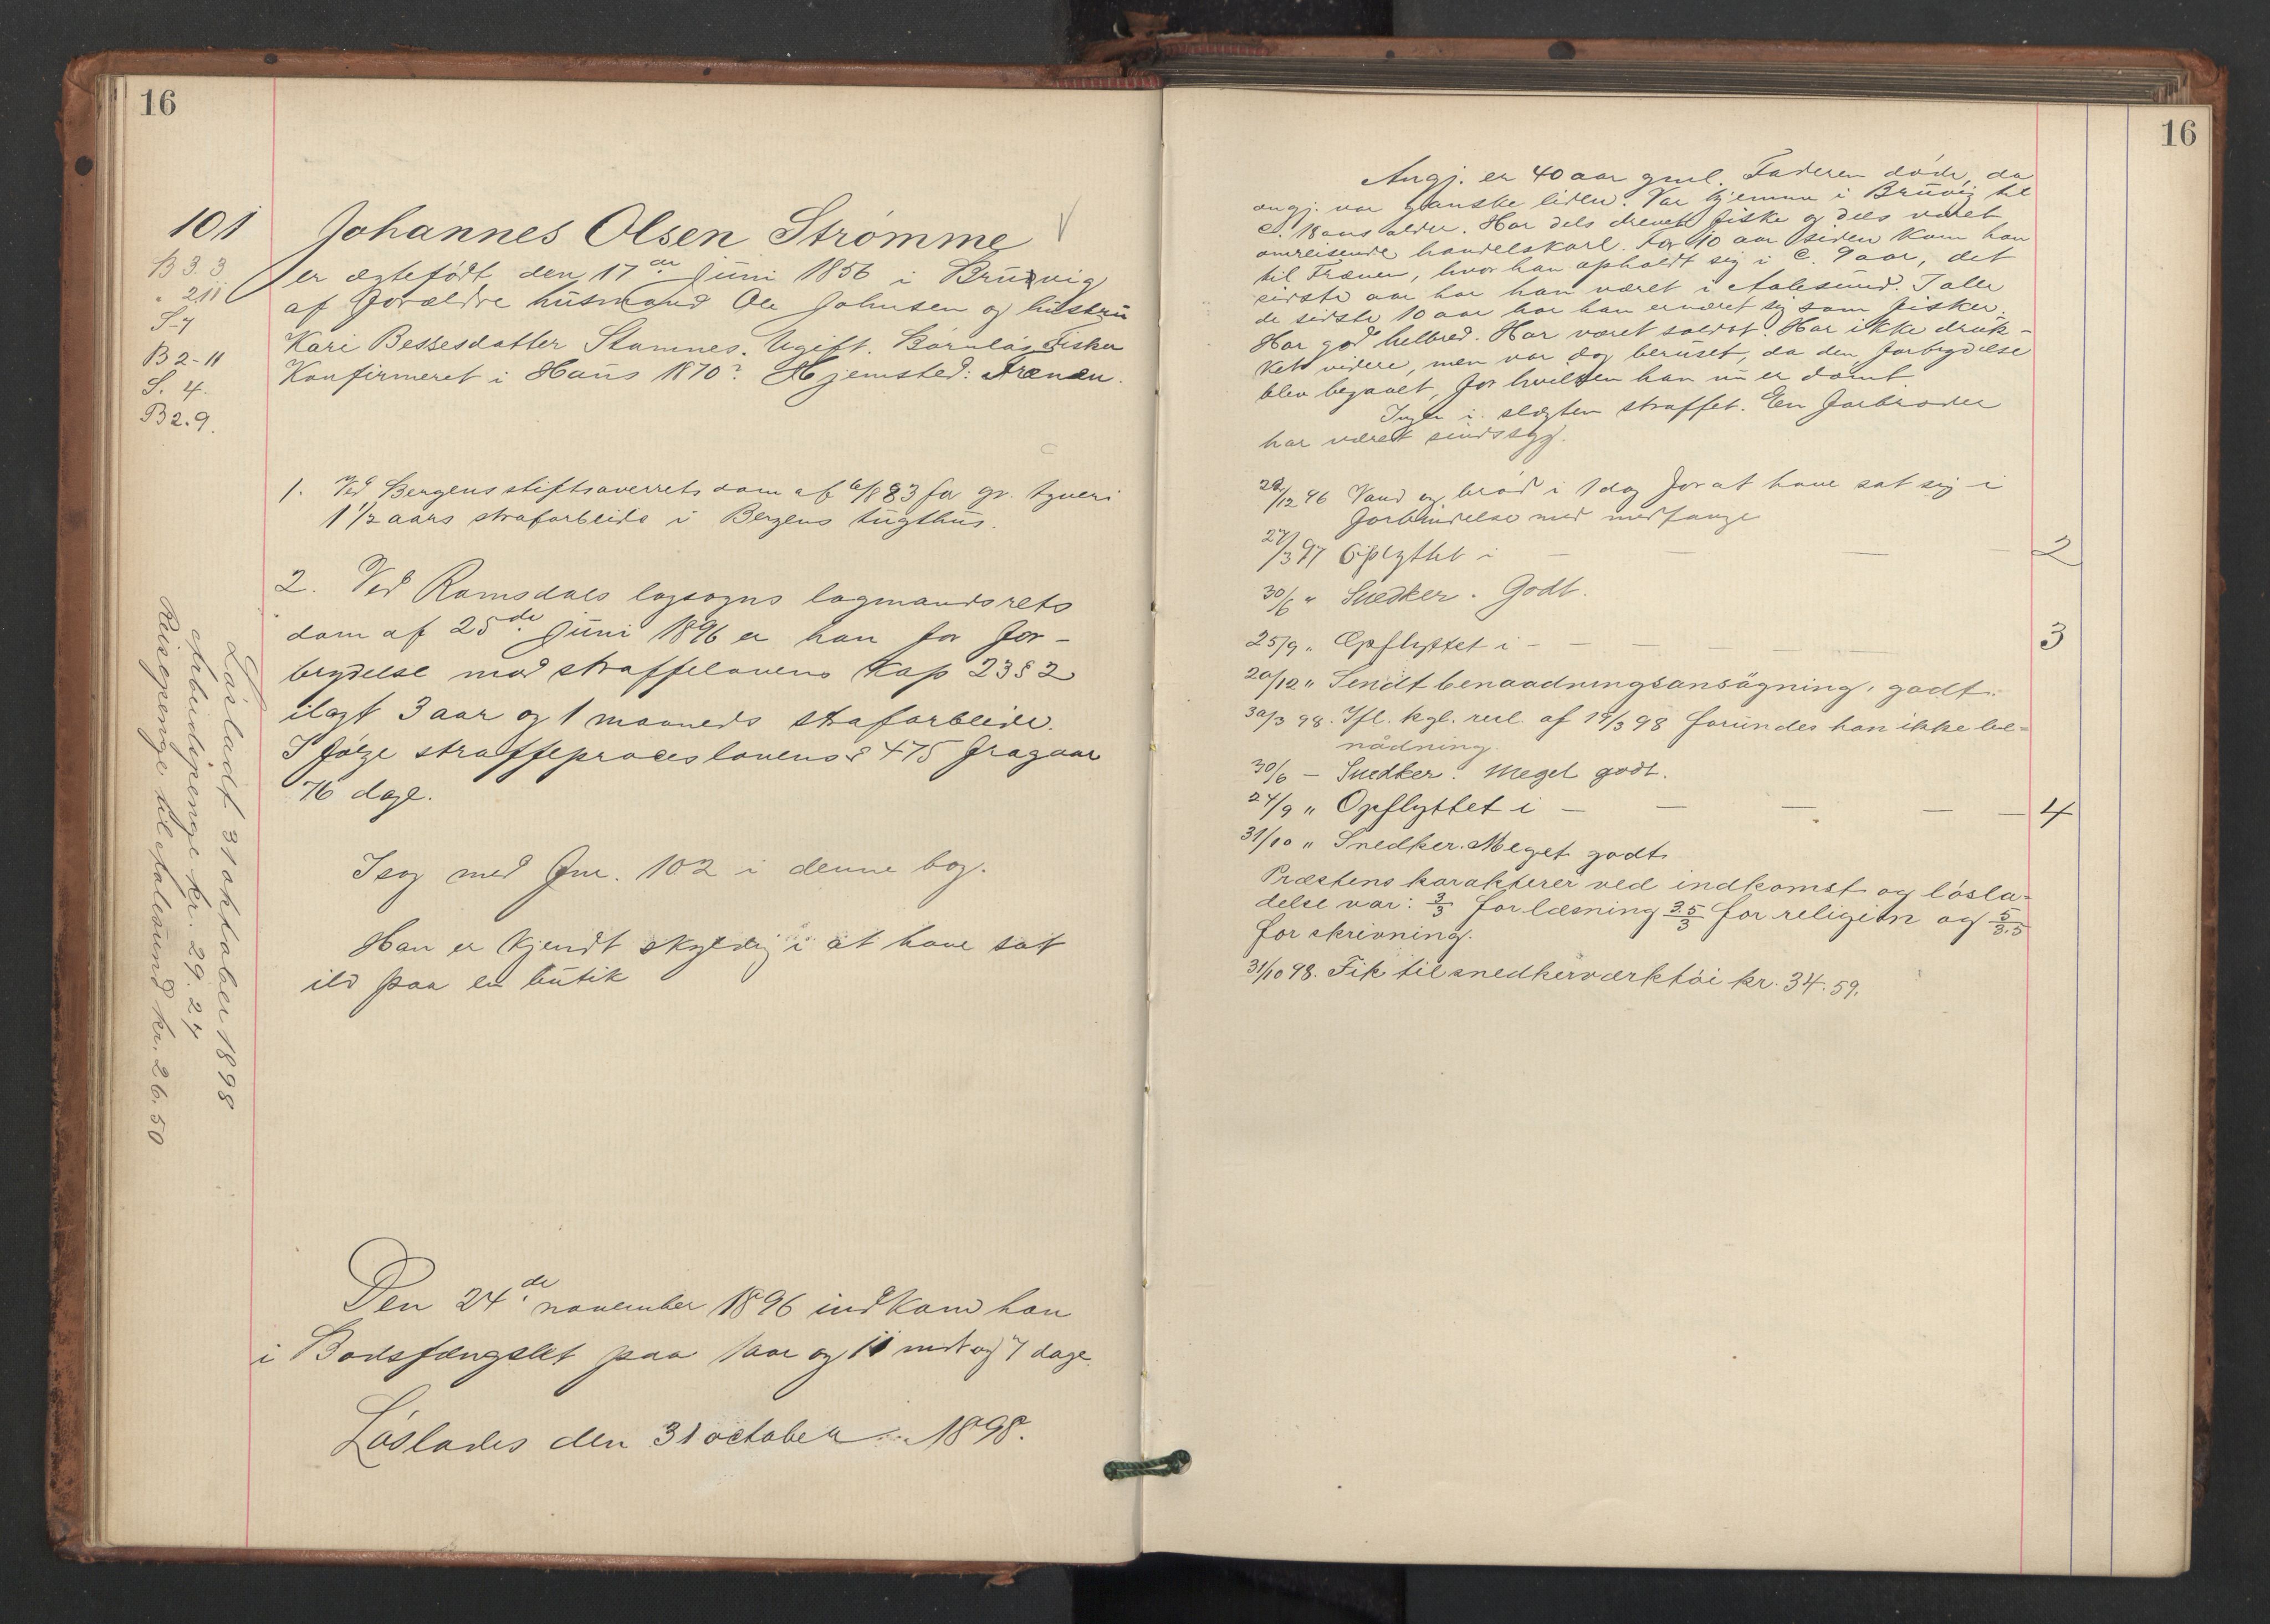 16
101
B 3. 3
" 211
S-7
B 2-11
S. 4.
B 2. 9.
Johannes Olsen Strømme
er ægtefødt den 17de Juni 1856 i Bruvig
af forældre husmand Ole Johnsen og hustru
Kari Bessesdatter Stamnes. Ugift. Barnløs. Fisker
Konfirmeret i Haus 1870? Hjemsted: Frænen.
1. Ved Bergens stiftsoverrets dom af 6/8 83 for gr. tyveri
1 1/2 aars strafarbeide i Bergens tugthus.
2. Ved Romsdals lagsogns lagmandsrets
dom af 25de Juni 1896 er han for for-
brydelse mod straffelovens Kap 23 § 2
ilagt 3 aar og 1 maaneds strafarbeide.
I følge straffeproceslovens § 475 fragaar
76 dage.
I sag med Gnr. 102 i denne bog.
Han er kjendt skyldig i at have sat
ild paa en butik
Løsladt 31 oktober 1898
Arbeidspenge kr. 29.24
Reisepenge til Aalesund kr. 26.50
Den 24de november 1896 indkom han
i Bodsfængslet paa 1 aar og 11 mdr og 7 dage.
Løslades den 31 october 1898.
16
Angj. er 40 aar gml. Faderen døde, da
angj. var ganske liden. Var hjemme i Bruvig til
c. 18 aars alder. Har dels drevet fiske og dels været
omreisende handelskarl. For 10 aar siden kom han
til Frænen, hvor han opholdt sig i c. 9 aar, det
sidste aar har han været i Aalesund. I alle
de sidste 10 aar har han ernæret sig som fisker.
Har god helbred. Har været soldat. Har ikke druk-
ket videre, men var dog beruset, da den forbrydelse
blev begaaet, for hvilken han nu er dømt.
Ingen i slægten straffet. En farbroder
har været sindssyg.
28/12 96 Vand og brød i 1 dag for at have sat sig i
forbindelse med medfange
27/3 97 Opflyttet i — — — — 2
30/6 " Snedker. Godt.
25/9 " Opflyttet i - — — — — — 3
20/12 " Sendt benaadningsansøgning, godt.
30/3 98. Ifl. kgl. resl. af 19/3 98 forundes han ikke be-
nådning.
30/6 — Snedker. Meget godt.
24/9 " Opflyttet i — — — — — 4
31/10 " Snedker. Meget godt.
Præstens karakterer ved indkomst og løsla-
delse var: 3/3 for læsning 3.5/3 for religion og 5/3.5
for skrivning.
31/10 98. Fik til snedkerværktøi kr. 34.59.